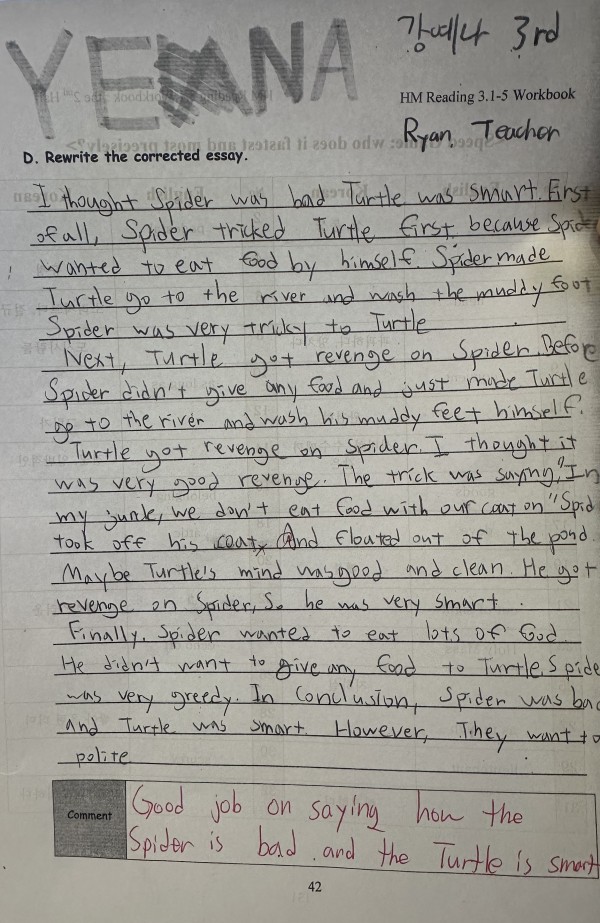 YENA
강예나 3rd
HM Reading 3.1-5 Workbook
Ryan Teacher
D. Rewrite the corrected essay.
I thought Spider was bad Turtle was smart. First
of all, Spider tricked Turtle first because Spid
wanted to eat food by himself. Spider made
Turtle go to the river and wash the muddy foot
Spider was very tricky to Turtle
Next, Turtle got revenge on Spider. Before
Spider didn't give any food and just made Turtle
go to the river and wash his muddy feet himself.
Turtle got revenge on Spider. I thought it
was very good revenge. The trick was saying, "In
my we don't eat food with our coat on" Spid
took off his coat, And floated out of the pond.
Maybe Turtle's mind was good and clean. He got
revenge on Spider, So he was very smart.
Finally, Spider wanted to eat lots of food.
He didn't want to give any food to Turtle. Spide
was very greedy. In Conclusion, Spider was bad
and Turtle was smart. However, They want to
polite
Comment
Good job on saying how the
Spider is bad and the Turtle is smart
42